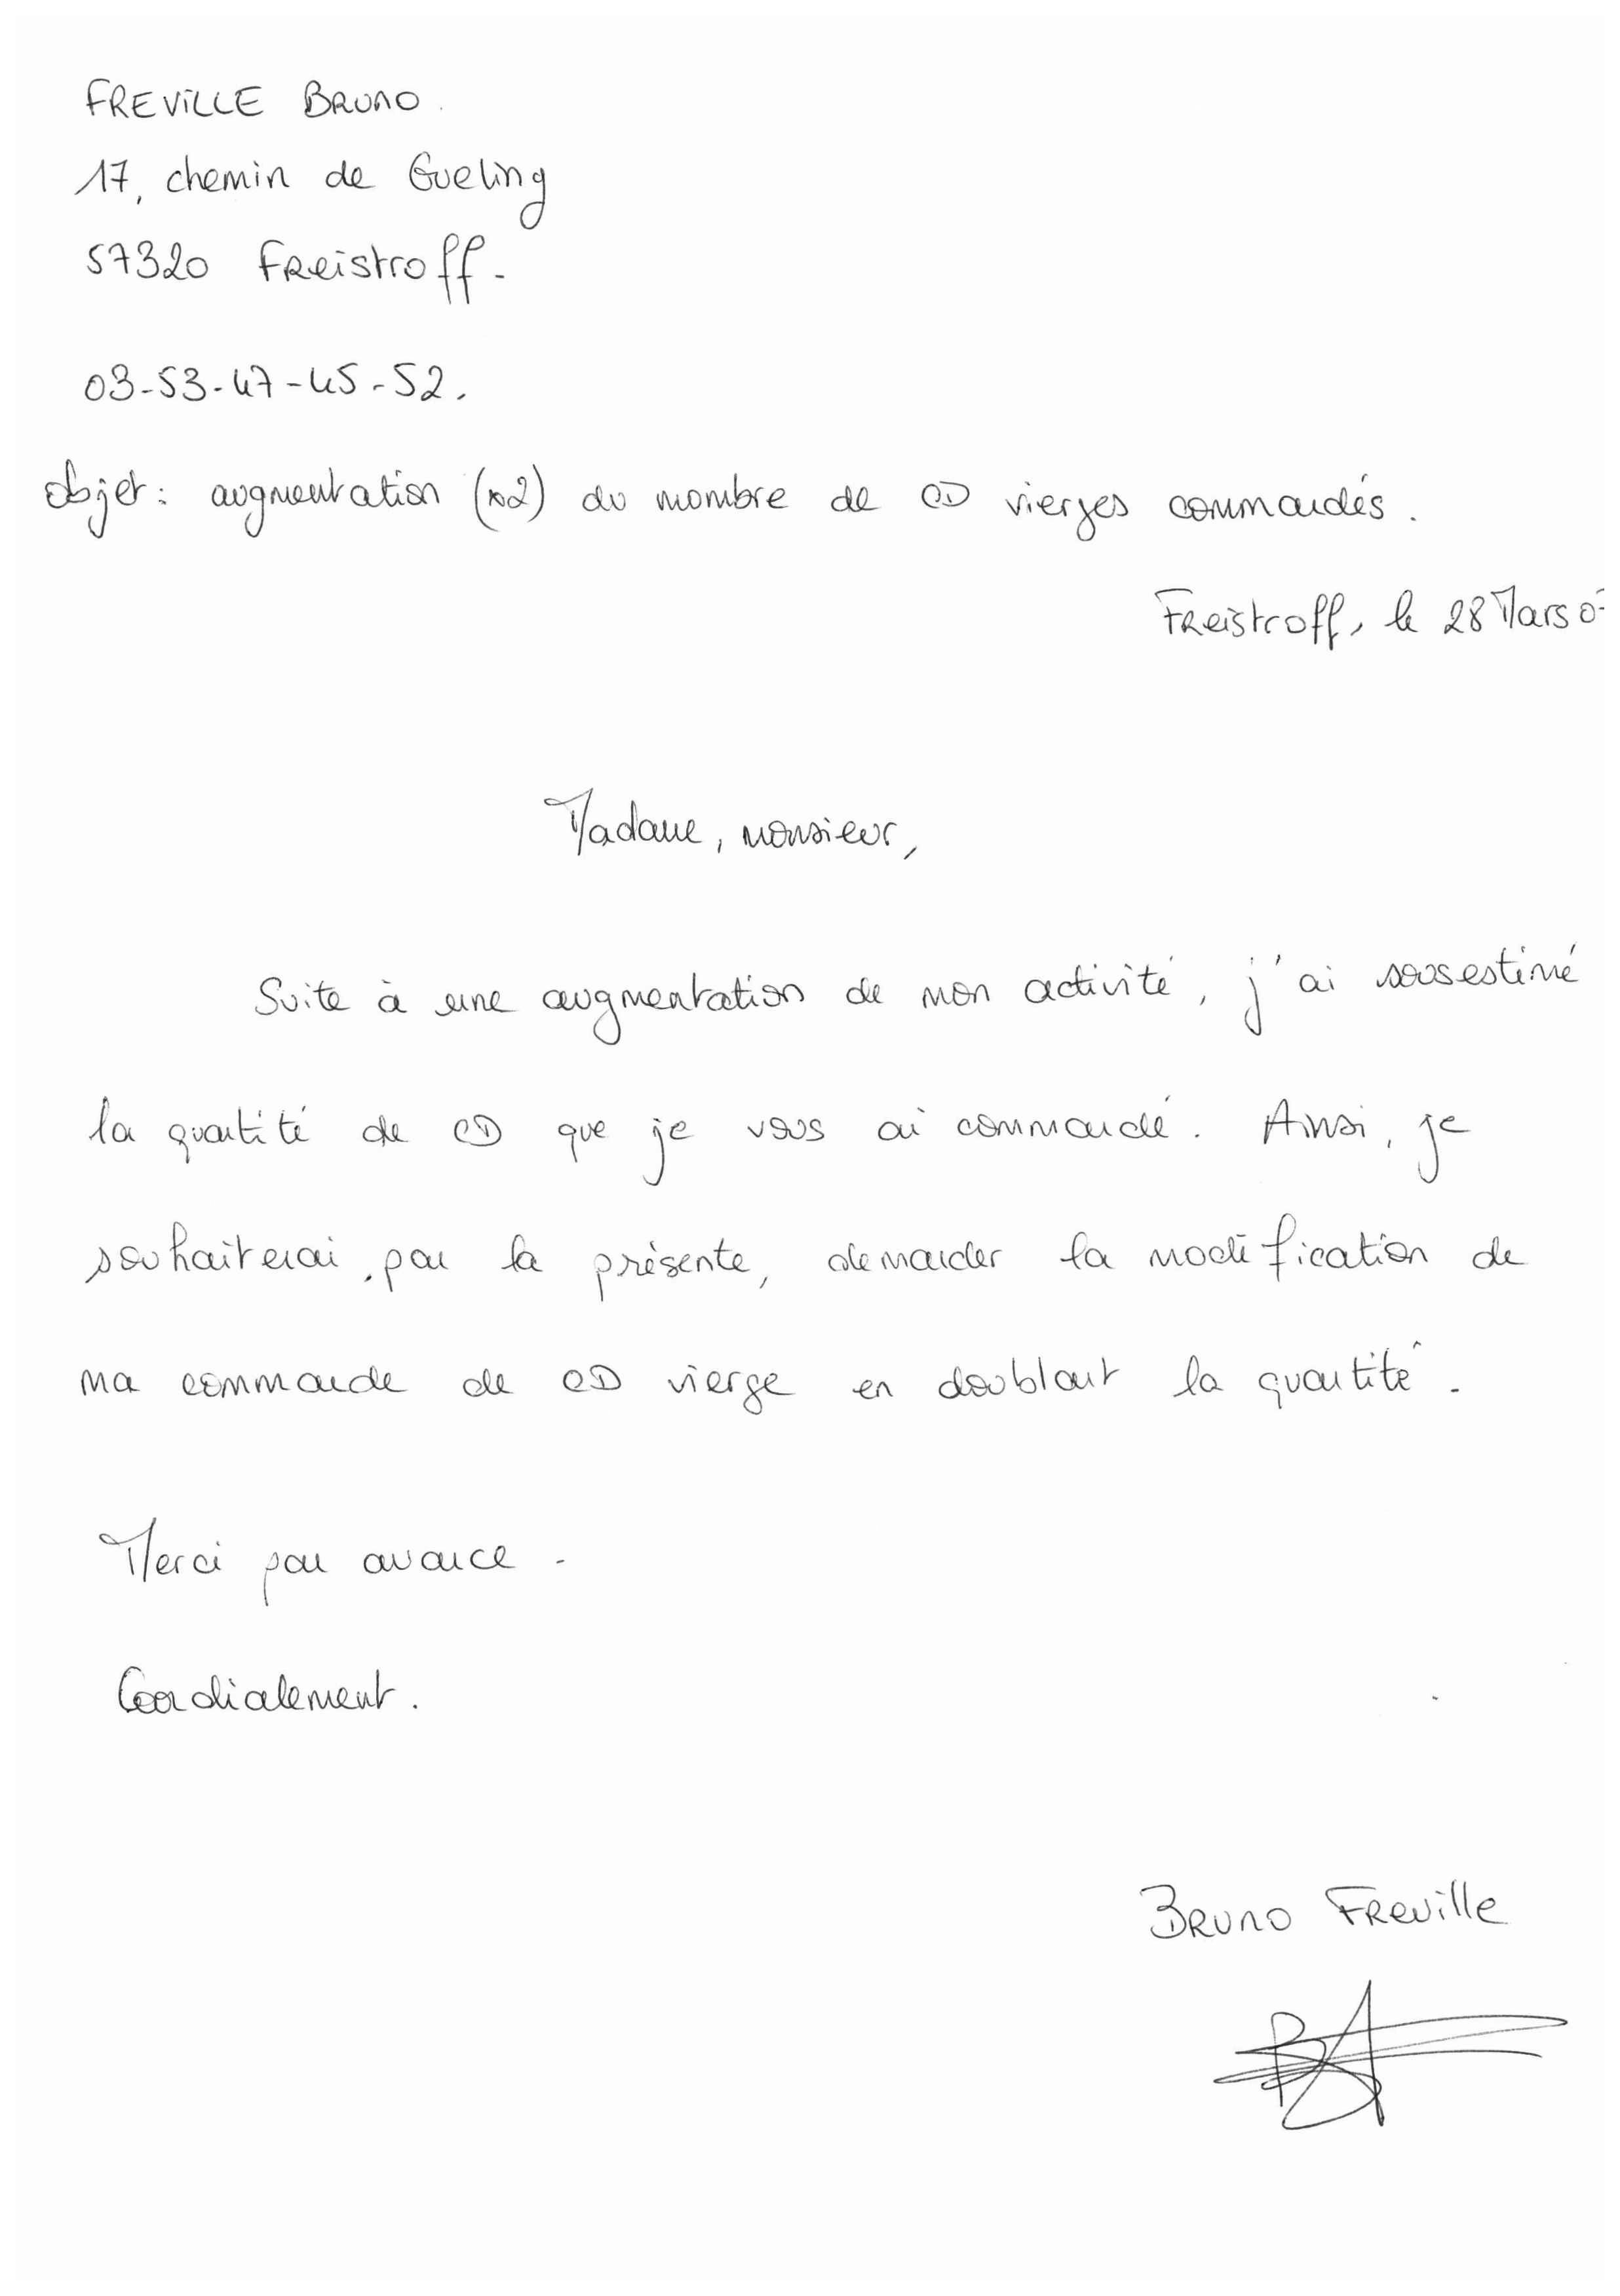 FREVILLE BRUNO.
17, chemin de Gueling
57320 Freistroff.
03-53-47-45-52.
objet: augmentation (x2) du nombre de CD vierges commandés.
Freistroff, le 28 Mars
Madame, monsieur,
Suite à une augmentation de mon activité, j'ai sousestimé
la quantité de CD que je vous ai commandé. Ainsi, je
souhaiterai, par la présente, demander la modification de
ma commande de CD vierge en doublant la quantité.
Merci par avance.
Cordialement.
Bruno Freville